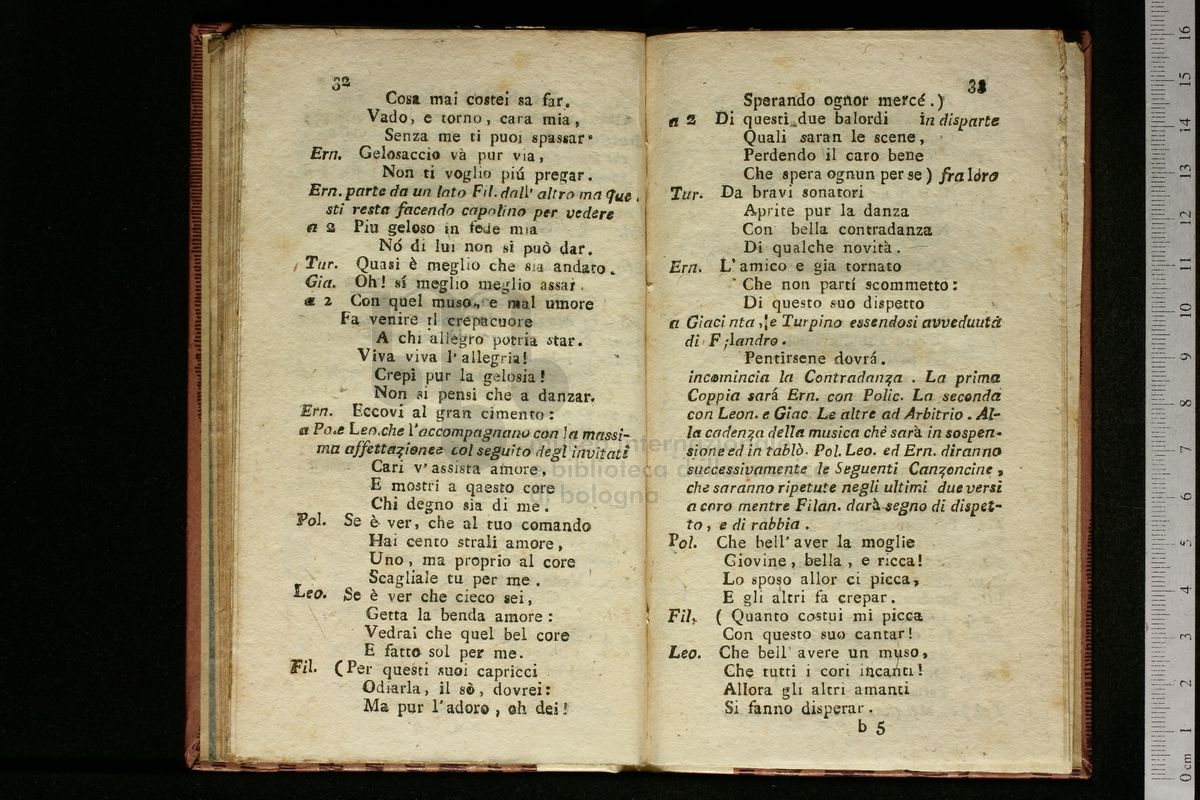 32
Cosa mai costei sa far.
Vado, e torno, cara mia,
Senza me ti puoi spassar.
Ern. Gelosaccio và pur via,
Non ti voglio piú pregar.
Ern. parte da un lato Fil. dall' altro ma que
sti resta facendo capolino per vedere
a 2 Piu geloso in fede mia
Nó di lui non si può dar.
Tur. Quasi è meglio che sia andato.
Gia. Oh! sí meglio meglio assai.
a 2 Con quel muso, e mal umore
Fa venire il crepacuore
A chi allegro potria star.
Viva viva l'allegria!
Crepi pur la gelosia!
Non si pensi che a danzar.
Ern. Eccovi al gran cimento:
a Po.e Leo.che l'accompagnano con la massi-
ma affettazionee col seguito degl invitati
Cari v'assista amore,
E mostri a qaesto core
Chi degno sia di me.
Pol. Se è ver, che al tuo comando
Hai cento strali amore,
Uno, ma proprio al core
Scagliale tu per me.
Leo. Se è ver che cieco sei,
Getta la benda amore:
Vedrai che quel bel core
E fatto sol per me.
Fil. (Per questi suoi capricci
Odiarla, il sò, dovrei:
Ma pur l'adoro, oh dei!
33
Sperando ognor mercé.)
a 2 Di questi due balordi in disparte
Quali saran le scene,
Perdendo il caro bene
Che spera ognun per se) fra loro
Tur. Da bravi sonatori
Aprite pur la danza
Con bella contradanza
Di qualche novità.
Ern. L'amico e gia tornato
Che non partí scommetto:
Di questo suo dispetto
a Giacinta, e Turpino essendosi avveduutà
di F;landro.
Pentirsene dovrá.
incomincia la Contradanza. La prima
Coppia sará Ern. con Polic. La seconda
con Leon. e Giac. Le altre ad Arbitrio. Al-
la cadenza della musica chè sarà in sospen-
sione ed in tablò. Pol. Leo. ed Ern. diranno
successivamente le Seguenti Canzoncine,
che saranno ripetute negli ultimi due versi
a coro mentre Filan. darà segno di dispet-
to, e di rabbia.
Pol. Che bell'aver la moglie
Giovine, bella, e ricca!
Lo sposo allor ci picca,
E gli altri fa crepar.
Fil. (Quanto costui mi picca
Con questo suo cantar!
Leo. Che bell' avere un muso,
Che tutti i cori incanti!
Allora gli altri amanti
Si fanno disperar.
b 5
museo internazionale
e biblioteca della
di bologna
0 cm 1 2 3 4 5 6 7 8 9 10 11 12 13 14 15 16